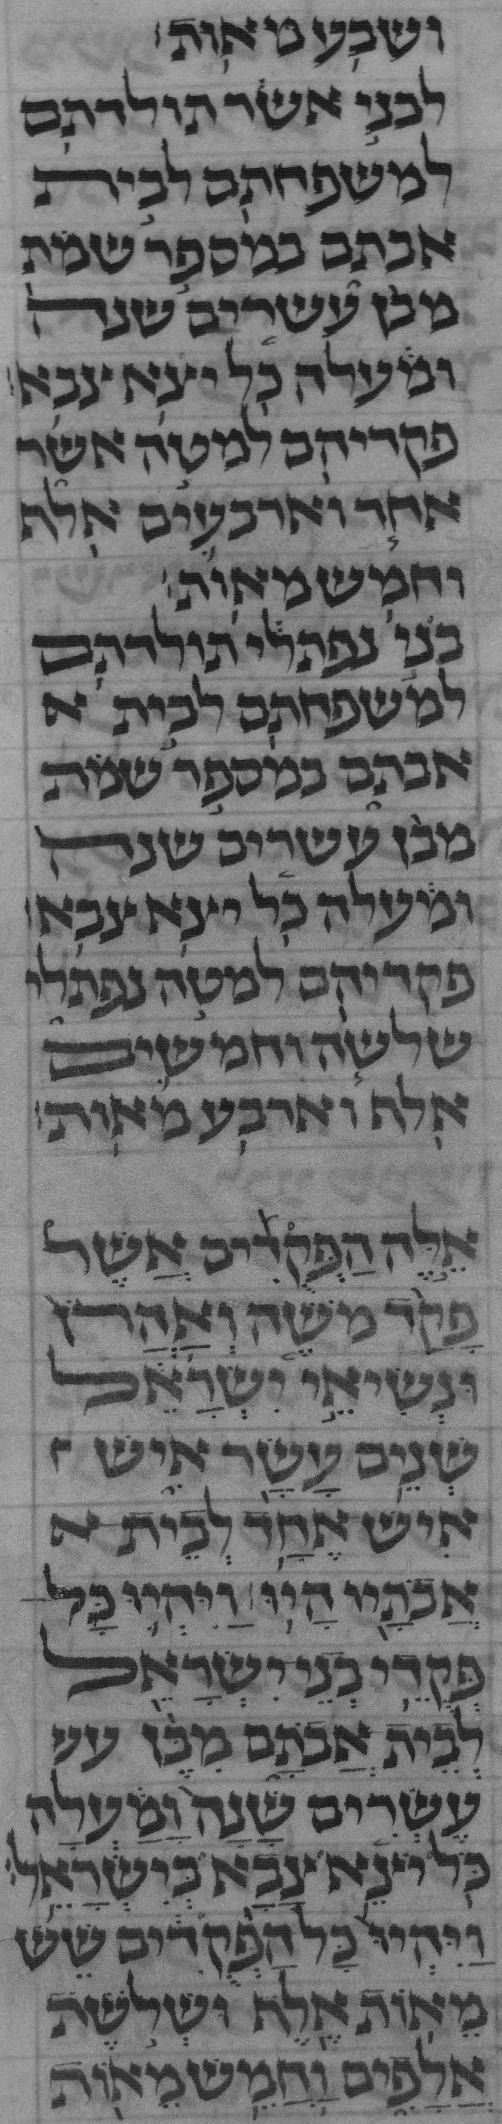 ושבע מאות
לבני אשר תולדתם
למשפחתם לבית
אבתם במספר שמת
מבן עשרים שנה
ומעלה כל יצא צבא
פקדיהם למטה אשר
אחד וארבעים אלף
וחמש מאות
בני נפתלי תולדתם
למשפחתם לבית א
אבתם במספר שמת
מבן עשרים שנה
ומעלה כל יצא צבא
פקדיהם למטה נפתלי
שלשה וחמשים
אלף וארבע מאות
אֵלֶּה הַפְּקֻדִים אֲשֶׁר
פָּקַד מֹשֶׁה וְאַהֲרֹן
וּנְשִׂיאֵי יִשְׂרָאֵל
שְׁנֵים עָשָׂר אִישׁ
אִישׁ אֶחָד לְבֵית א
אֲבֹתָיו הָיוּ וַיִּהְיוּ כָּל
פְּקֻדֵי בְנֵי יִשְׂרָאֵל
לְבֵית אֲבֹתָם מִבֶּן עש
עֶשְׂרִים שָׁנָה וָמַעְלָה
כָּל יֹצֵא צָבָא בְּיִשְׂרָאֵל
וַיִּהְיוּ כָּל הַפְּקֻדִים שֵׁשׁ
מֵאוֹת אֶלֶף וּשְׁלֹשֶׁת
אֲלָפִים וַחֲמֵשׁ מֵאוֹת